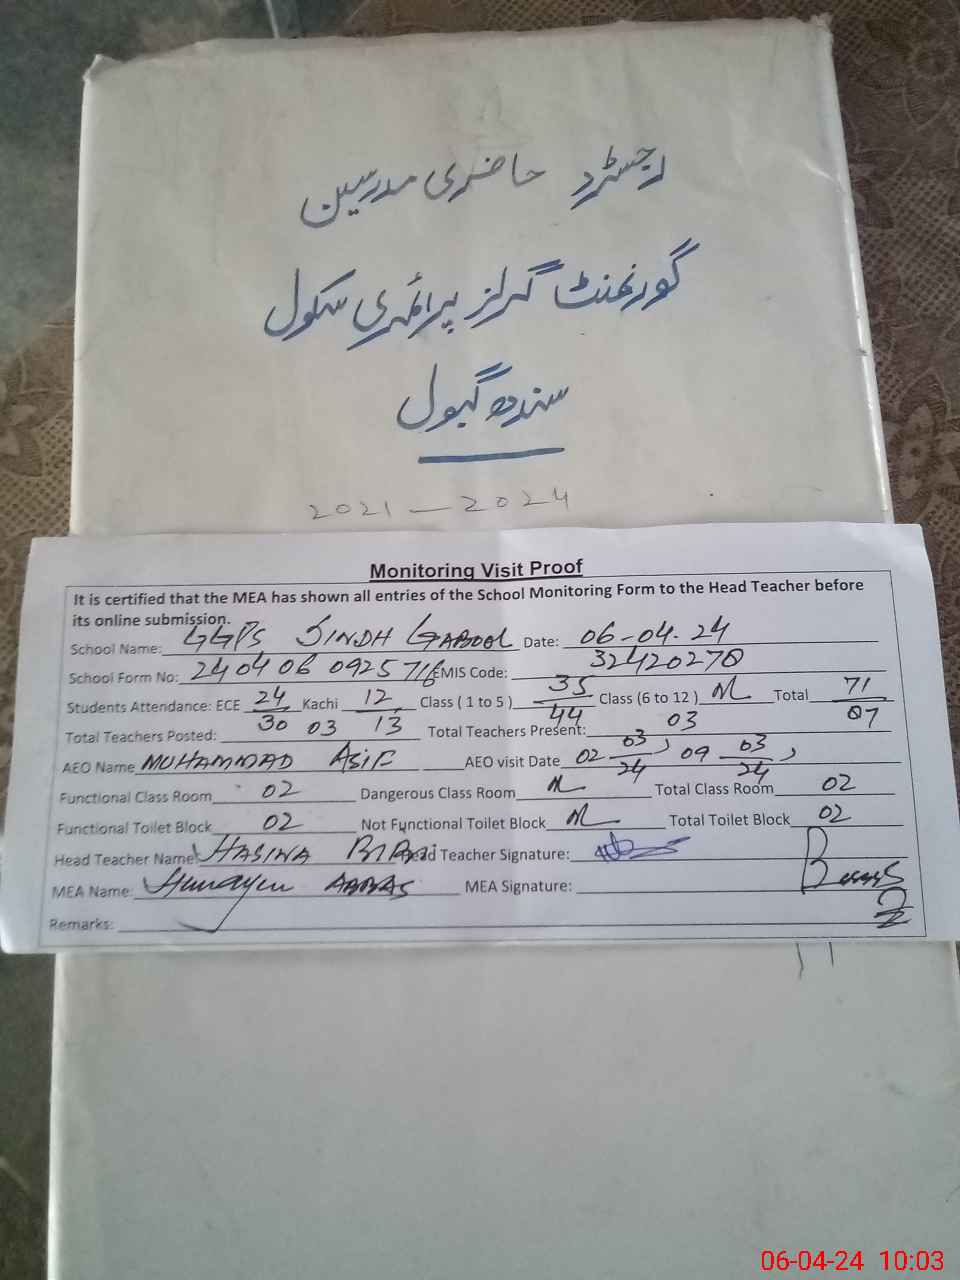 رجسٹرڈ حاضری مدرسین
گورنمنٹ گرلز پرائمری سکول
سندھ گبول
2021 — 2024
Monitoring Visit Proof
It is certified that the MEA has shown all entries of the School Monitoring Form to the Head Teacher before
its online submission.
School Name: GGPS SINDH GABOOL Date: 06-04-24
School Form No: 240406 0925 716 EMIS Code: 32420270
Students Attendance: ECE 24/30 Kachi 12/13 Class ( 1 to 5 ) 35/44 Class (6 to 12 ) Total 71/87
Total Teachers Posted: 03 Total Teachers Present: 03
AEO Name MUHAMMAD ASIF AEO visit Date 02 03/24, 09 03/24,
Functional Class Room 02 Dangerous Class Room Total Class Room 02
Functional Toilet Block 02 Not Functional Toilet Block Total Toilet Block 02
Head Teacher Name HASINA BIBI Head Teacher Signature:
MEA Name: Humayun ABBAS MEA Signature:
Remarks:
06-04-24 10:03